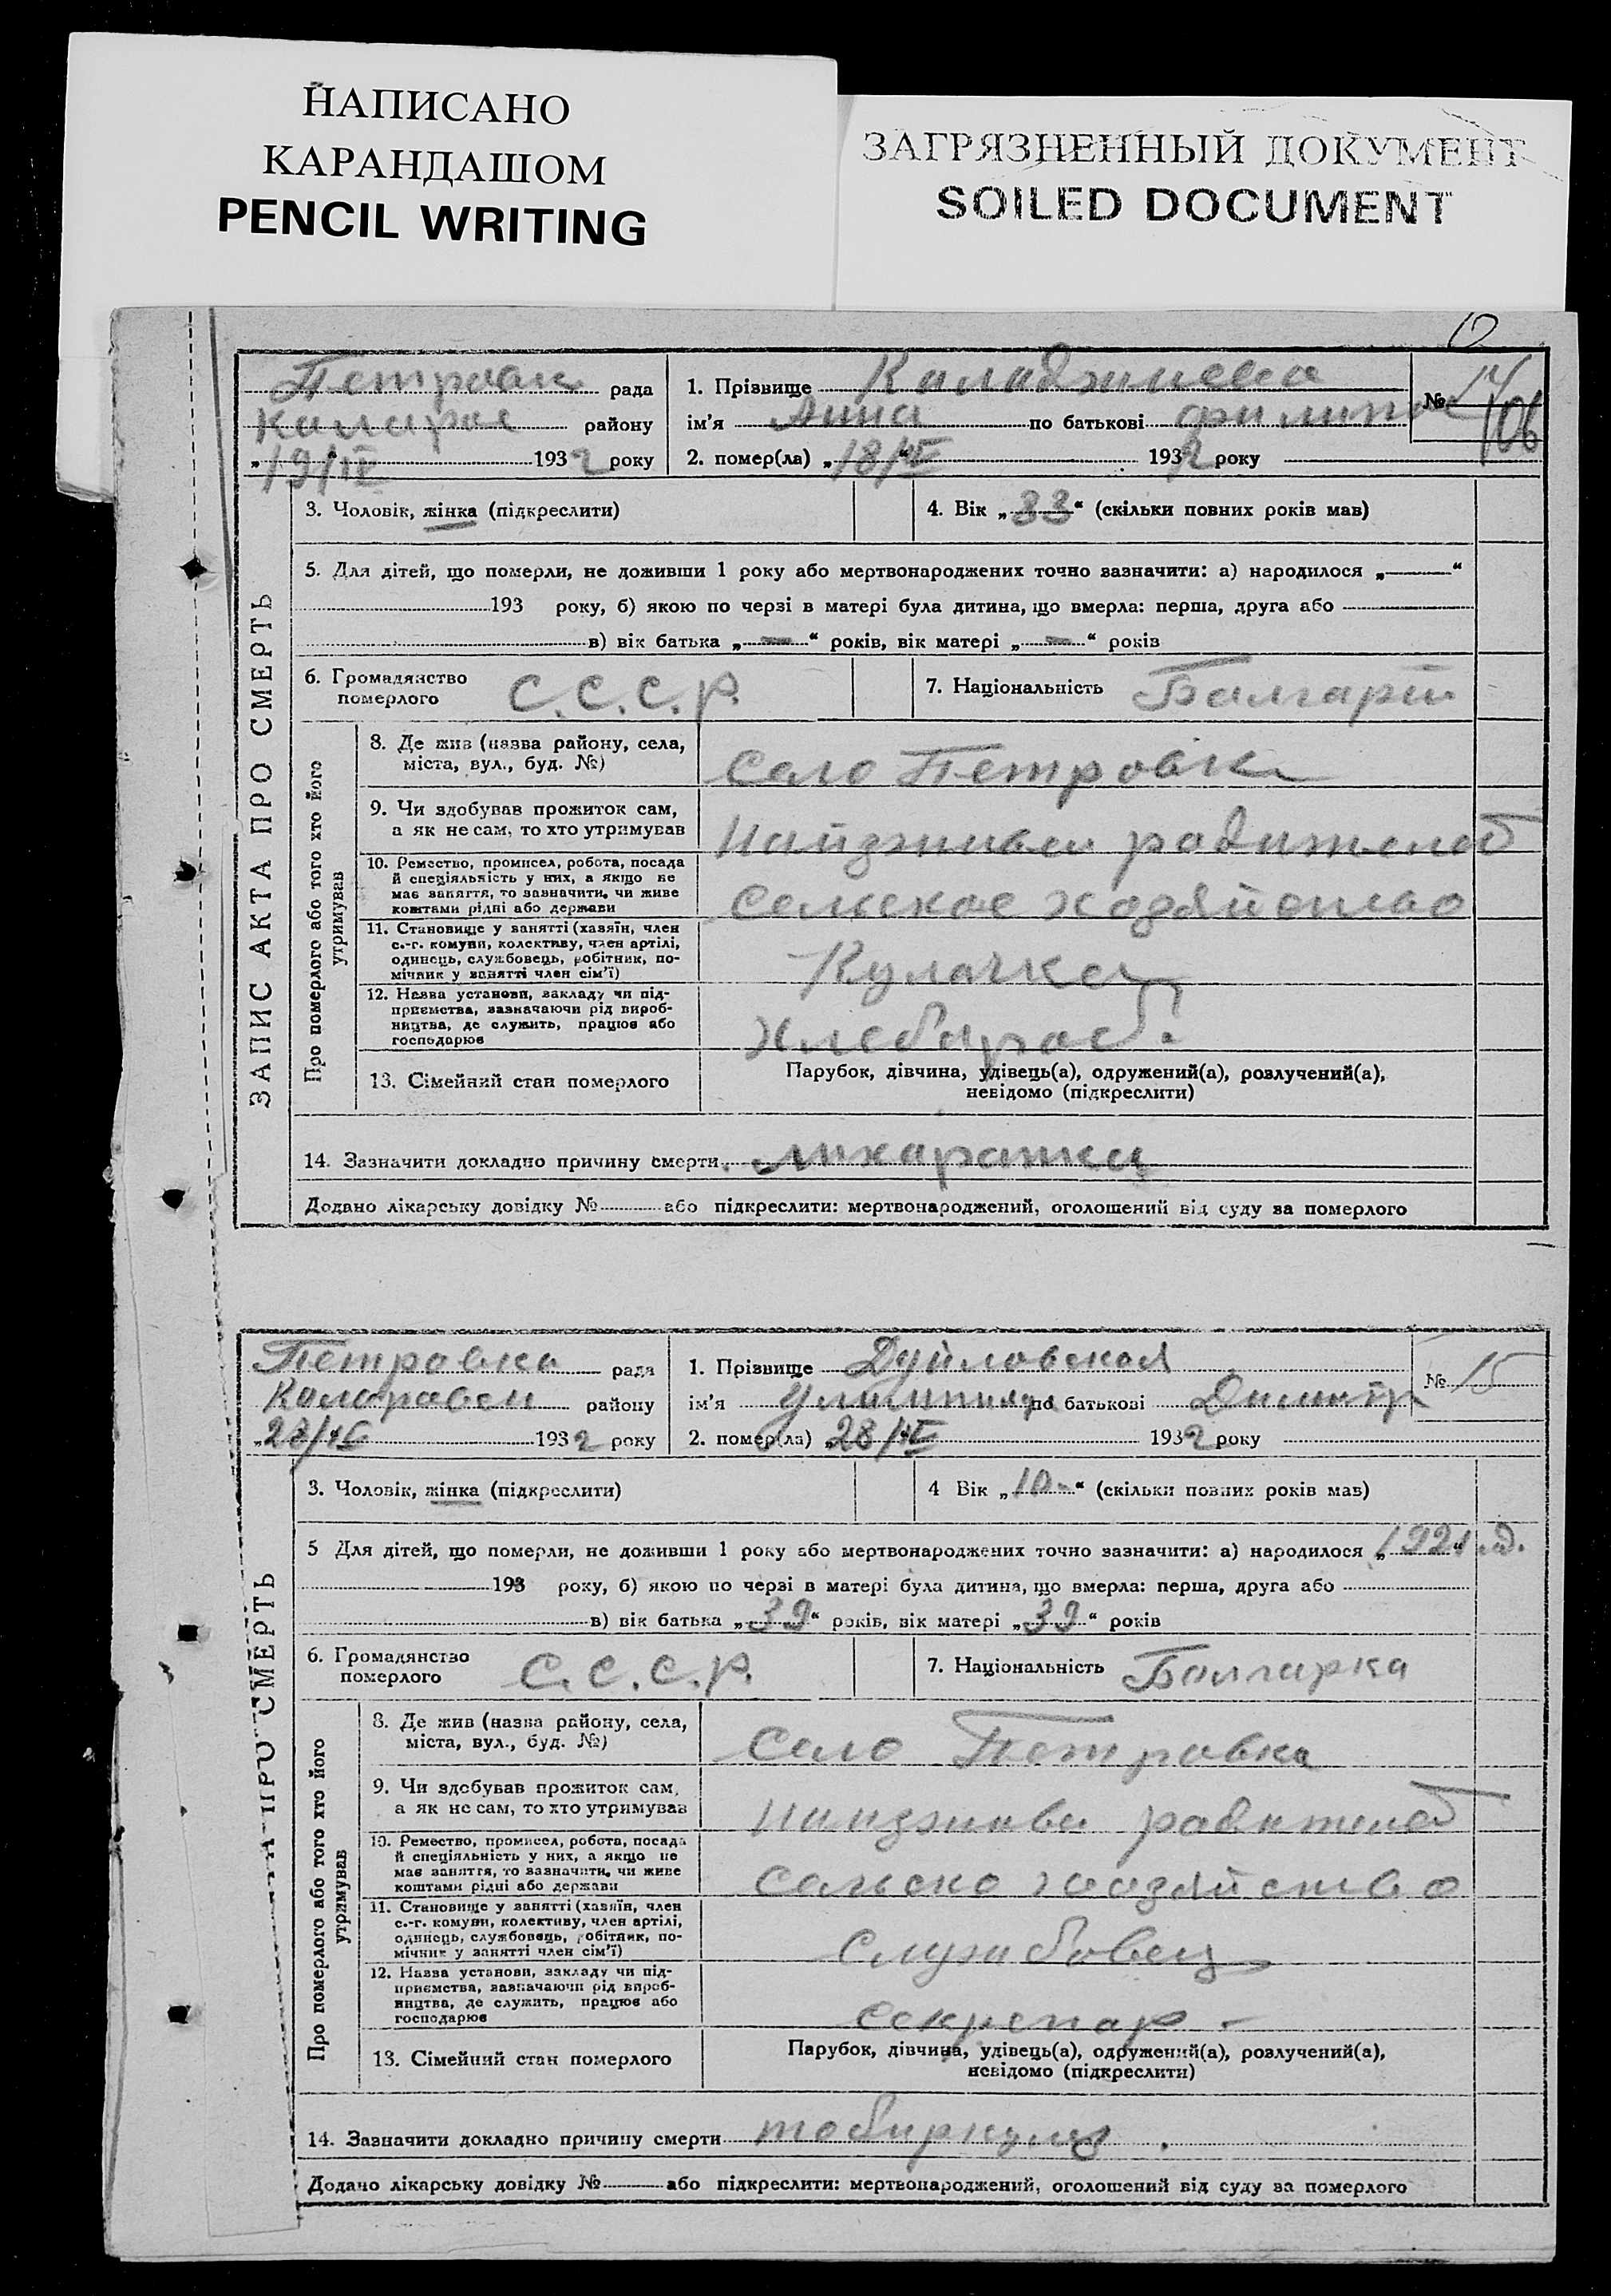 НАПИСАНО
КАРАНДАШОМ
PENCIL WRITING
ЗАГРЯЗНЕННЫЙ ДОКУМЕНТ
SOILED DOCUMENT
10
ЗАПИС АКТА ПРО СМЕРТЬ
рада
району
19/IV 1932 року
1. Прізвище Каладжиева
ім'я Анна по батькові филип
№ 14
106
2. помер(ла) „18/IV“ 1932 року
3. Чоловік, жінка (підкреслити)
4. Вік „33“ (скільки повних років мав)
5. Для дітей, що померли, не доживши 1 року або мертвонароджених точно зазначити: а) народилося „—“
193 року, б) якою по черзі в матері була дитина, що вмерла: перша, друга або
в) вік батька „—“ років, вік матері „—“ років
6. Громадянство
померлого С.С.С.Р.
7. Національність
Про померлого або того хто його
утримував
8. Де жив (назва району, села,
міста, вул., буд. №)
село Петровка
9. Чи здобував прожиток сам,
а як не сам, то хто утримував
10. Ремество, промисел, робота, посада
й спеціяльність у них, а якщо не
має заняття, то зазначити, чи живе
коштами рідні або держави
сельское хозяйство
11. Становище у занятті (хазяїн, член
с.-г. комуни, колективу, член артілі,
одинець, службовець, робітник, по-
мічник у занятті член сім'ї)
Кулачка
12. Назва установи, закладу чи під-
приємства, зазначаючи рід вироб-
ництва, де служить, працює або
господарює
хлебороб.
13. Сімейний стан померлого
Парубок, дівчина, удівець(а), одружений(а), розлучений(а),
невідомо (підкреслити)
14. Зазначити докладно причину смерти лихаратка
Додано лікарську довідку № або підкреслити: мертвонароджений, оголошений від суду за померлого
ПРО СМЕРТЬ
Петровка рада
району
28/IV 1932 року
1. Прізвище Дуйловская
ім'я по батькові Димитр
№ 15
2. помер(ла) „28/IV 1932 року
3. Чоловік, жінка (підкреслити)
4 Вік „10-“ (скільки повних років мав)
5 Для дітей, що померли, не доживши 1 року або мертвонароджених точно зазначити: а) народилося „1921 г.
193 року, б) якою по черзі в матері була дитина, що вмерла: перша, друга або
в) вік батька „39“ років, вік матері „39“ років
6. Громадянство
померлого С.С.С.Р.
7. Національність Болгарка
Про померлого або того хто його
утримував
8. Де жив (назва району, села,
міста, вул., буд. №)
село Петровка
9. Чи здобував прожиток сам,
а як не сам, то хто утримував
10. Ремество, промисел, робота, посада
й спеціяльність у них, а якщо не
має заняття, то зазначити, чи живе
коштами рідні або держави
сельско хозяйство
11. Становище у занятті (хазяїн, член
с.-г. комуни, колективу, член артілі,
одинець, службовець, робітник, по-
мічник у занятті член сім'ї)
Службовец
12. Назва установи, закладу чи під-
приємства, зазначаючи рід вироб-
ництва, де служить, працює або
господарює
секретар -
13. Сімейний стан померлого
Парубок, дівчина, удівець(а), одружений(а), розлучений(а),
невідомо (підкреслити)
14. Зазначити докладно причину смерти
Додано лікарську довідку № або підкреслити: мертвонароджений, оголошений від суду за померлого